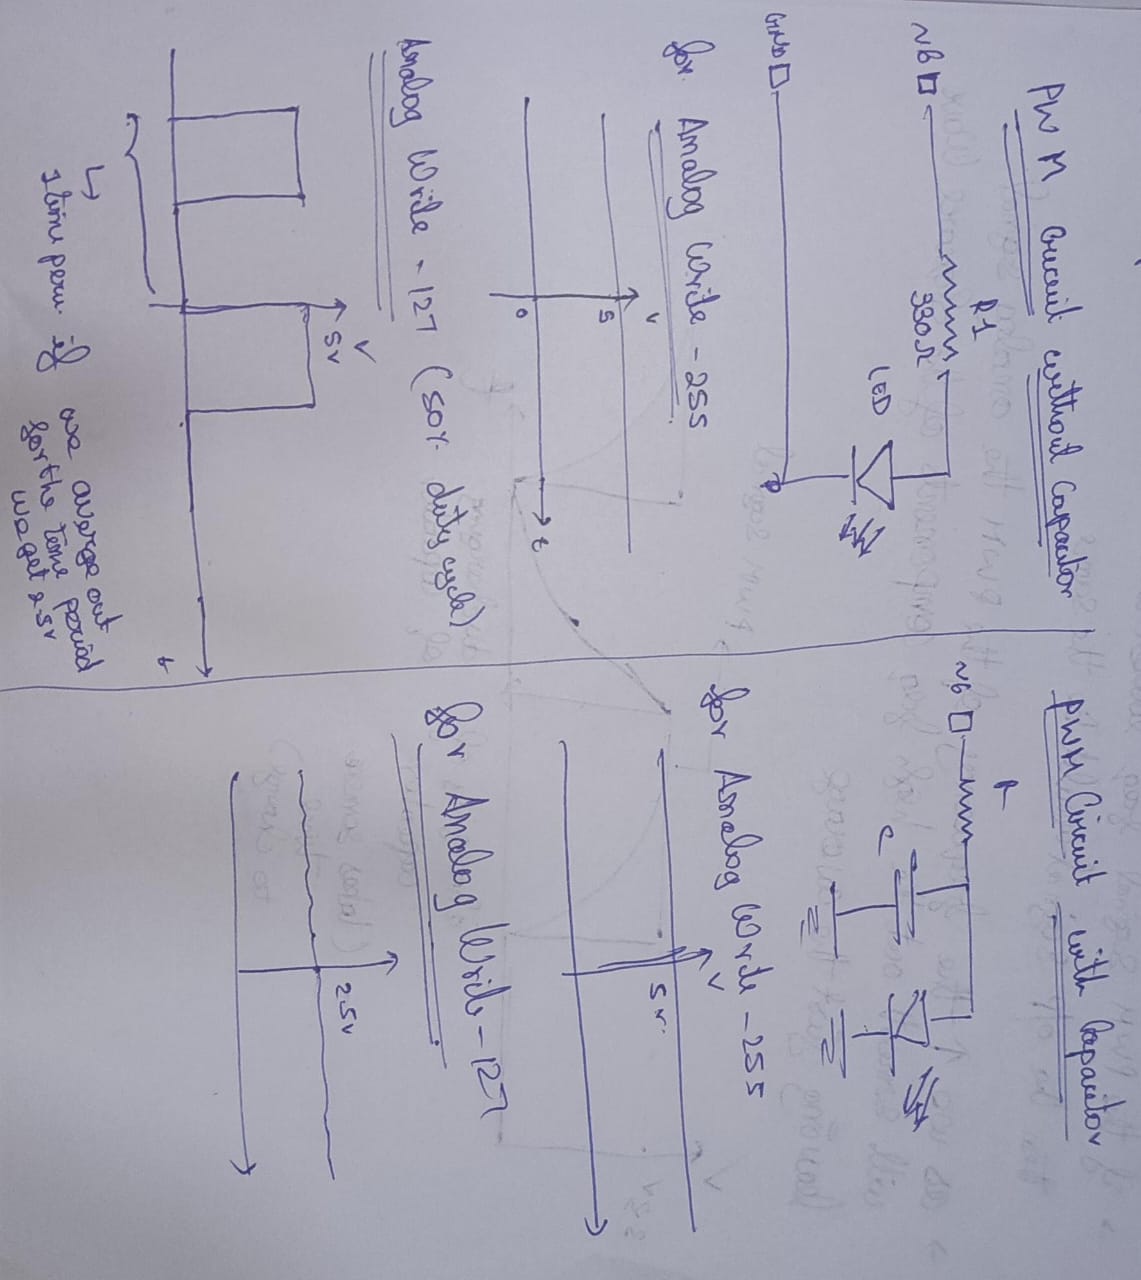 PWM Circuit without Capacitor
R1
~6
330Ω
LED
GND
for Analog Write - 255
V
5
t
0
Analog Write - 127 (50% duty cycle)
V
5V
t
1 time peri. if we averge out
for the time period
we get 2.5V
PWM Circuit with Capacitor
R
~6
C
for Analog Write - 255
V
5V
for Analog Write - 127
2.5V